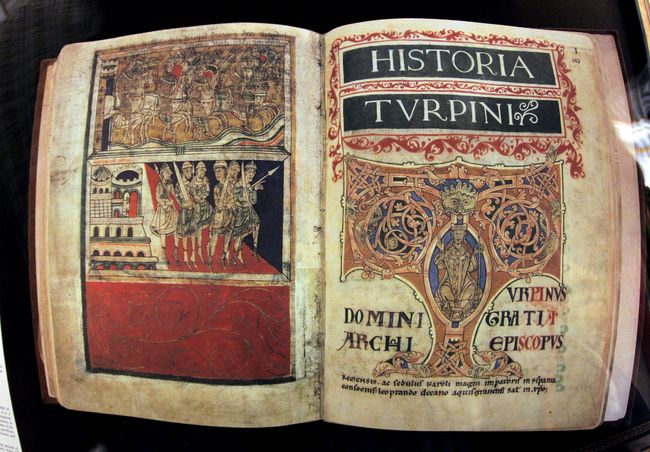 I
163
HISTORIA
TVRPINI
VRPINVS
DOMINI GRATIA
ARCHI EPISCOPVS
ac sedulus Karoli magni impatoris in
consocius leoprando decano aquisgranensi sal' in xpo;